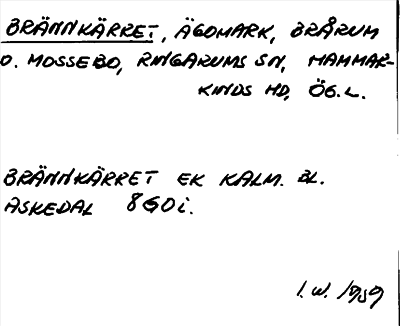 BRÄNNKÄRRET, ÄGOMARK, BRÅRUM
O. MOSSEBO, RINGARUMS SN, HAMMAR-
KINDS HD, ÖG. L.
BRÄNNKÄRRET EK KALM. BL.
ASKEDAL 8G0i.
I. W. 1959